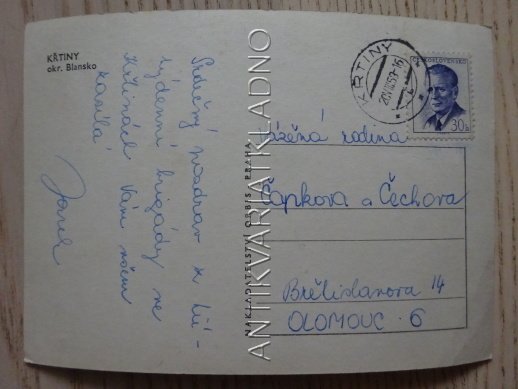 KŘTINY
okr. Blansko
Srdečný pozdrav z tří-
týdenní brigády ve
Křtinách Vám všem
posílá
Jarek
NAKLADATELSTVÍ ORBIS PRAHA
ANTIKVARIATKLADNO
KŘTINY
ČESKOSLOVENSKO
30h
Vážená rodina
Čapkova a Čechova
Břetislavova 14
OLOMOUC 6